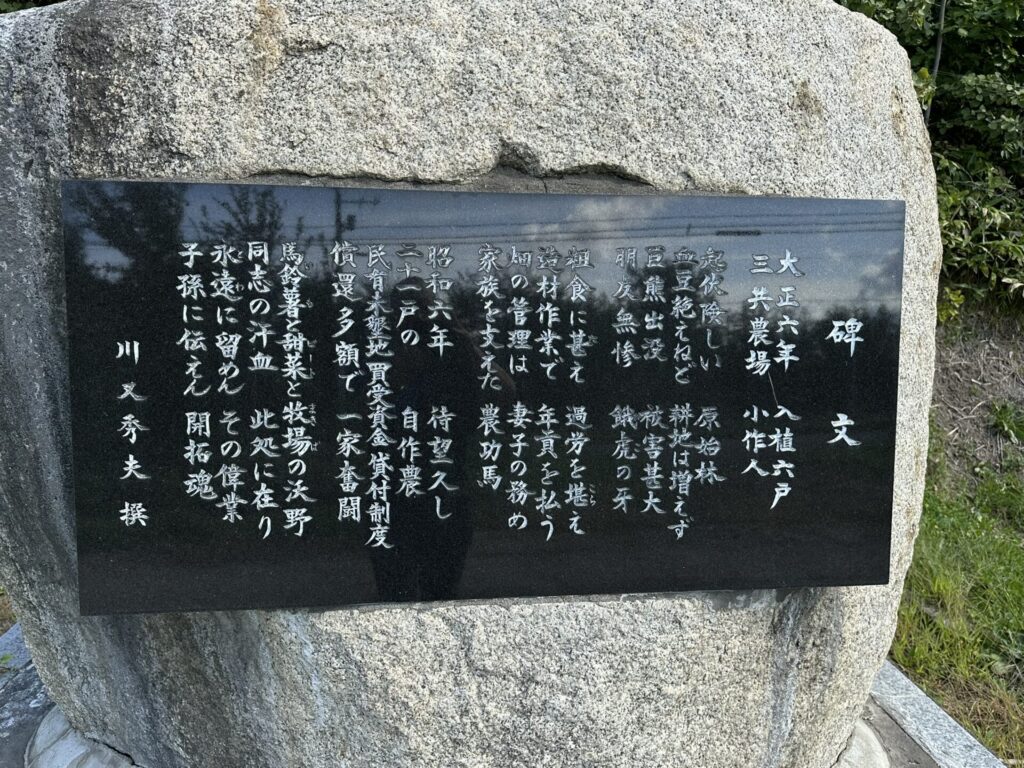 碑文
大正六年 入植六戸
三共農場 小作人
起伏険しい 原始林
血豆絶えねど 耕地は増えず
巨熊出没 被害甚大
明度無惨 餓虎の牙
粗食に甚え 過労を堪え
造材作業で 年貢を払う
畑の管理は 妻子の務め
家族を支えた 農功馬
昭和六年 待望久し
二十一戸の 自作農
民有未墾地買受資金貸付制度
償還多額で 一家奮闘
馬鈴署と甜菜と牧場の沃野
同志の汗血 此処に在り
永遠に留めん その偉業
子孫に伝えん 開拓魂
川又秀夫 撰